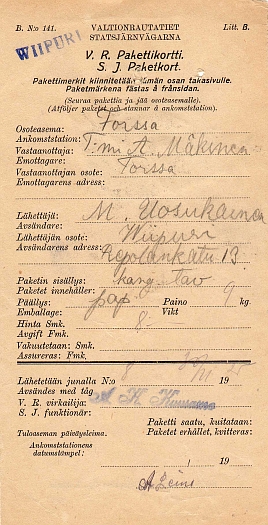 B. N:o 141. VALTIONRAUTATIET Litt. B.
STATSJÄRNVÄGARNA
WIIPURI
V. R. Pakettikortti.
S. J. Paketkort.
Pakettimerkit kiinnitetään tämän osan takasivulle.
Paketmärkena fästas å frånsidan.
(Seuraa pakettia ja jää osoteasemalle).
(Atföljer paketet och stannar å ankomststation).
Osoteasema: Forssa
Ankomststation:
Vastaanottaja: T:mi A. Mäkinen
Emottagare:
Vastaanottajan osote: Forssa
Emottagarens adress:
Lähettäjä: M. Uosukainen
Avsändare:
Lähettäjän osote: Wiipuri
Avsändarens adress: Repolankatu 13
Paketin sisällys: kang. tav
Paketet innehåller:
Päällys: pap Paino 9 kg.
Emballage: Vikt
Hinta Smk. 8:-
Avgift Fmk.
Vakuutetaan: Smk.
Assureras: Fmk.
Lähetetään junalla N:o 8 19 25
Avsändes med tåg
V. R. virkailija:
S. J. funktionär:
Paketti saatu, kuitataan:
Tuloaseman päiväysleima. Paketet erhållet, kvitteras:
Ankomststationens
datumstämpel:
19